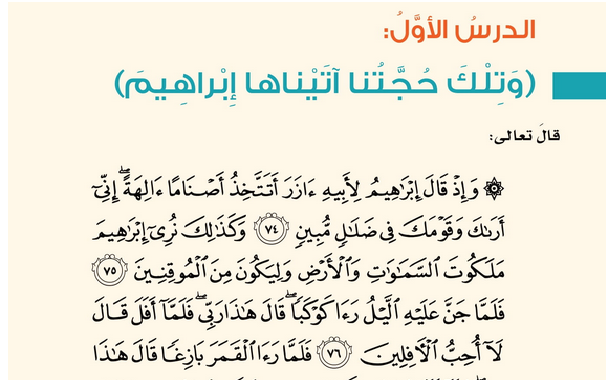 الدرسُ الأوَّلُ:
(وَتِلْكَ حُجَّتُنا آتَيْناها إِبْراهِيمَ)
قالَ تعالى:
۞ وَإِذْ قَالَ إِبْرَٰهِيمُ لِأَبِيهِ ءَازَرَ أَتَتَّخِذُ أَصْنَامًا ءَالِهَةً ۖ إِنِّىٓ
أَرَىٰكَ وَقَوْمَكَ فِى ضَلَٰلٍ مُّبِينٍ ٧٤ وَكَذَٰلِكَ نُرِىٓ إِبْرَٰهِيمَ
مَلَكُوتَ ٱلسَّمَٰوَٰتِ وَٱلْأَرْضِ وَلِيَكُونَ مِنَ ٱلْمُوقِنِينَ ٧٥
فَلَمَّا جَنَّ عَلَيْهِ ٱلَّيْلُ رَءَا كَوْكَبًا ۖ قَالَ هَٰذَا رَبِّى ۖ فَلَمَّآ أَفَلَ قَالَ
لَآ أُحِبُّ ٱلْءَافِلِينَ ٧٦ فَلَمَّا رَءَا ٱلْقَمَرَ بَازِغًا قَالَ هَٰذَا